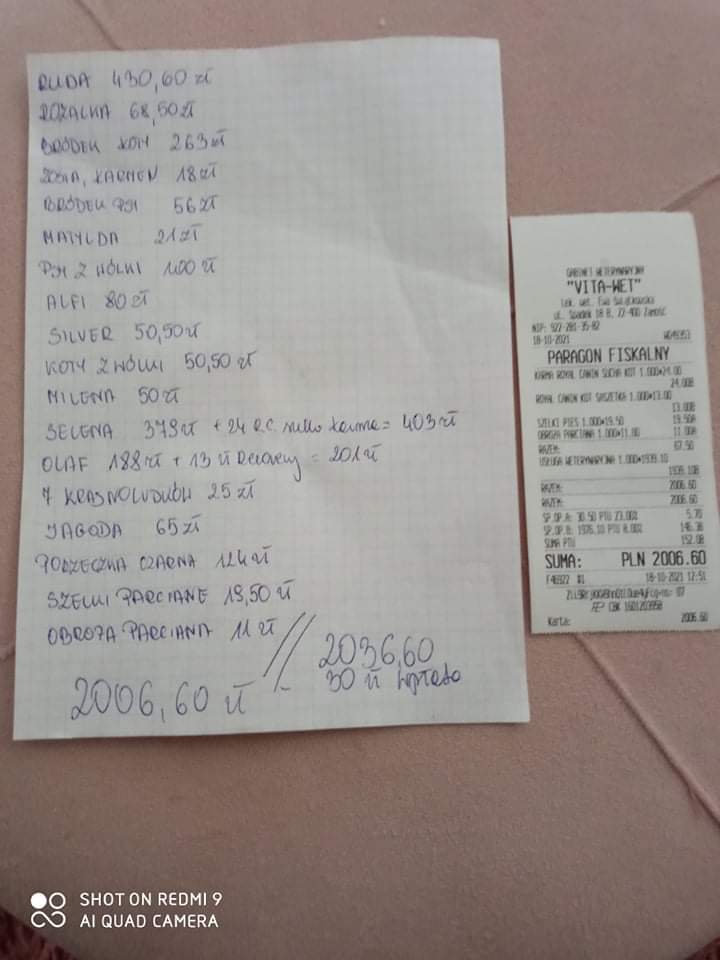 RUDA 430,60 zł
ROZALKA 68,50 zł
BRÓDEK KOTY 263 zł
ZOSIA, KARMEN 18 zł
BRÓDEK PSY 56 zł
MATYLDA 21 zł
PSY Z WÓLKI 100 zł
ALFI 80 zł
SILVER 50,50 zł
KOTY Z WÓLKI 50,50 zł
MILENA 50 zł
SELENA 379 zł + 24 R.C. sucha karma = 403 zł
OLAF 188 zł + 13 zł Recovery = 201 zł
7 KRASNOLUDKÓW 25 zł
JAGODA 65 zł
PORZECZKA CZARNA 124 zł
SZELKI PARCIANE 19,50 zł
OBROŻA PARCIANA 11 zł
2036,60
- 30 zł wpłata
2006,60 zł
GABINET WETERYNARYJNY
"VITA-WET"
lek. wet. Ewa
ul. Spadek 18 B, 22-400 Zamość
NIP: 922-281-35-82
18-10-2021
PARAGON FISKALNY
KARMA ROYAL CANIN SUCHA KOT 1.000×24.00
24.00B
ROYAL CANIN KOT SASZETKA 1.000×13.00
13.00B
SZELKI PIES 1.000×19.50 19.50A
OBROŻA PARCIANA 1.000×11.00 11.00A
RAZEM: 67.50
USŁUGA WETERYNARYJNA 1.000×1939.10
1939.10B
RAZEM: 2006.60
RAZEM: 2006.60
SP.OP.A: 30.50 PTU 23.00% 5.70
SP.OP.B: 1976.10 PTU 8.00% 146.38
SUMA PTU 152.08
SUMA: PLN 2006.60
#1 18-10-2021 12:51
Karta: 2006.60
SHOT ON REDMI 9
AI QUAD CAMERA